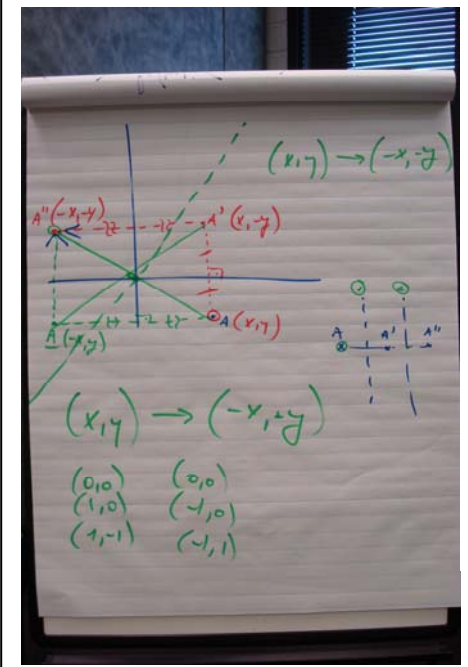 (x,y) → (-x,-y)
A'' (-x,-y)
A' (x,-y)
A (-x,y)
A (x,y)
A A' A''
(x,y) → (-x,-y)
(0,0) (0,0)
(1,0) (-1,0)
(1,-1) (-1,1)